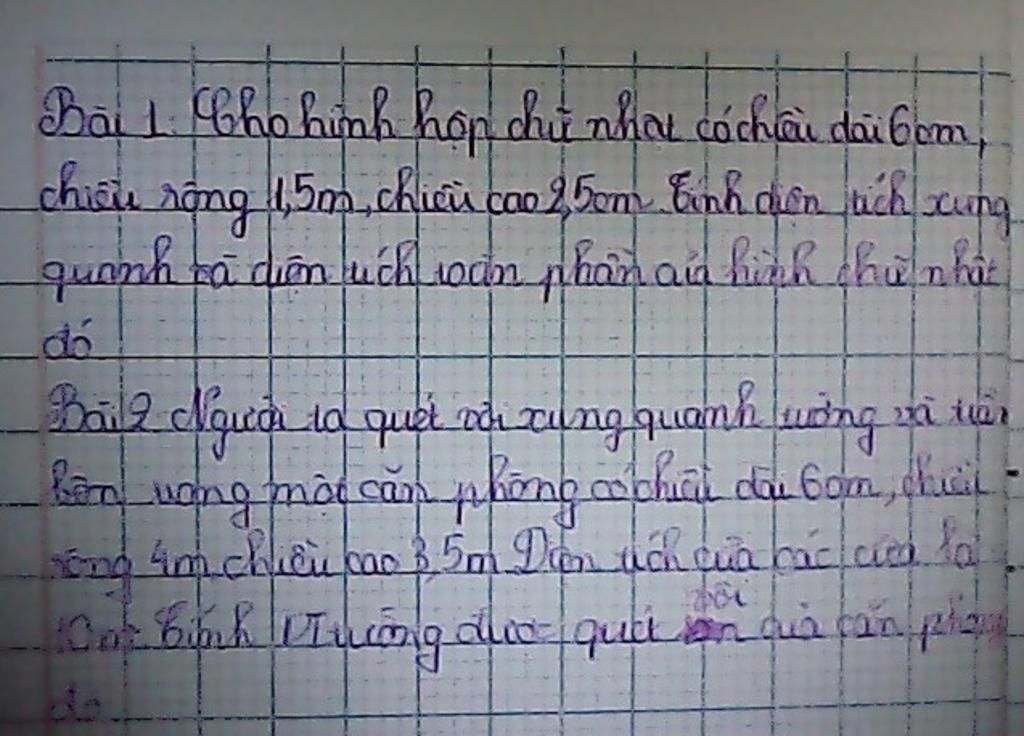 Bài 1. Cho hình hộp chữ nhật có chiều dài 6cm,
chiều rộng 1,5m, chiều cao 2,5cm. Tính diện tích xung
quanh và diện tích toàn phần của hình chữ nhật
đó
Bài 2 Người ta quét vôi xung quanh tường và trần
bên trong một căn phòng có chiều dài 6cm, chiều
rộng 4m, chiều cao 3,5m Diện tích của các cửa là
Tính DT tường được quét vôi của căn phòng
đó